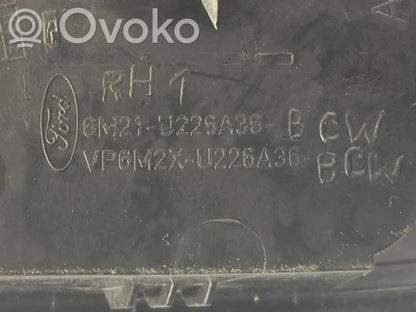 Ovoko
RH1
Ford
6M21-U226A36-BCW
VP6M2X-U226A36-BCW